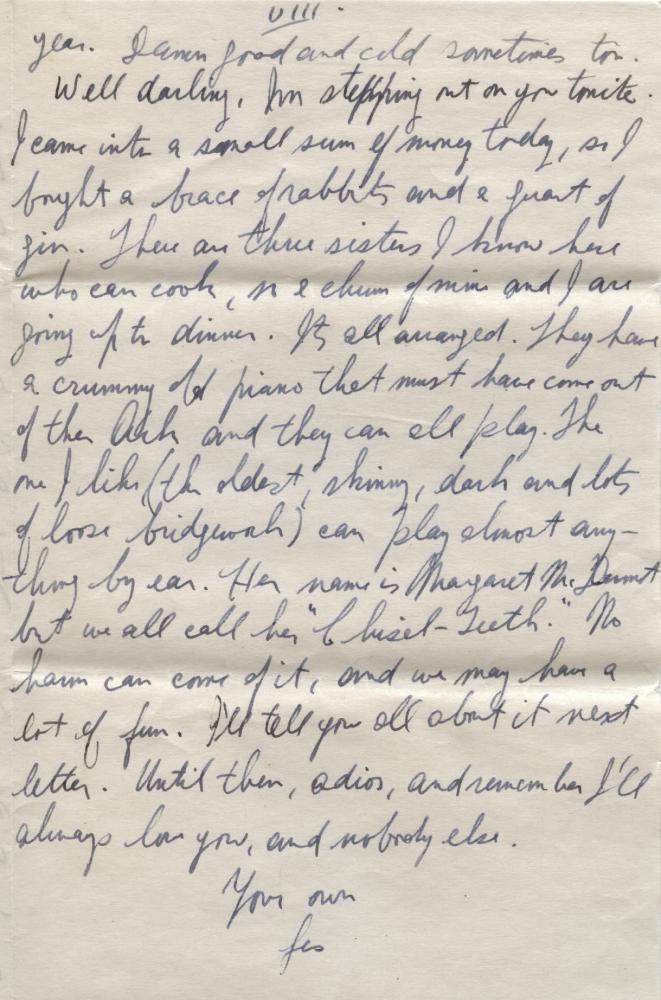 VIII.
year. Damn good and cold sometimes too.
Well darling, I'm stepping out on you tonite.
I came into a small sum of money today, so I
bought a brace of rabbits and a quart of
gin. There are three sisters I know here
who can cook, so a chum of mine and I are
going up to dinner. It's all arranged. They have
a crummy old piano that must have come out
of the Ark and they can all play. The
one I like (the oldest, skinny, dark and lots
of loose bridgework) can play almost any-
thing by ear. Her name is Margaret McDermot
but we all call her "Chisel-Teeth." No
harm can come of it, and we may have a
lot of fun. I'll tell you all about it next
letter. Until then, adios, and remember I'll
always love you, and nobody else.
Your own